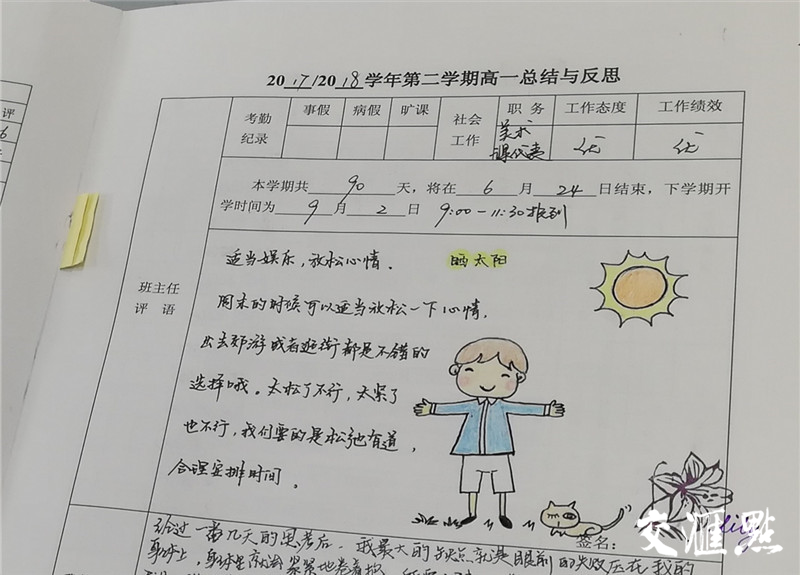 评
6
2017/2018学年第二学期高一总结与反思
考勤纪录 事假 病假 旷课 社会工作 职务 工作态度 工作绩效
美术课代表 优 优
本学期共 90 天，将在 6 月 24 日结束，下学期开
学时间为 9 月 2 日 9:00-11:30报到
班主任
评 语
适当娱乐，放松心情。 晒太阳
周末的时候可以适当放松一下心情，
出去郊游或者逛街都是不错的
选择哦。太松了不行，太紧了
也不行，我们要的是松弛有道，
合理安排时间。
签名： Lily
经过一番几天的思考后，我最大的缺点就是眼前的失败压在我的
身上，
交汇點